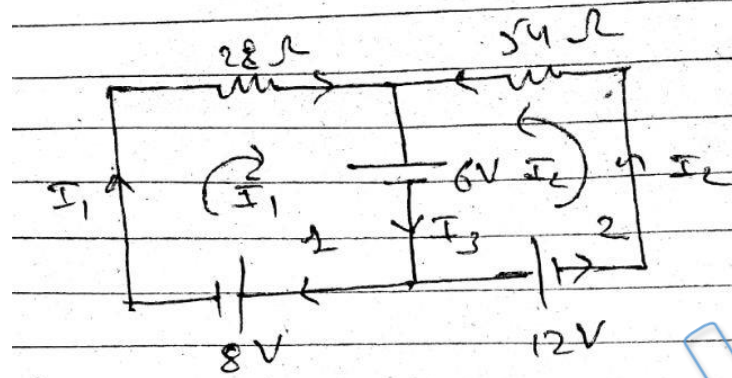 28 Ω 54 Ω
I₁ I₁ 6V I₂ I₂
1 I₃ 2
8 V 12 V